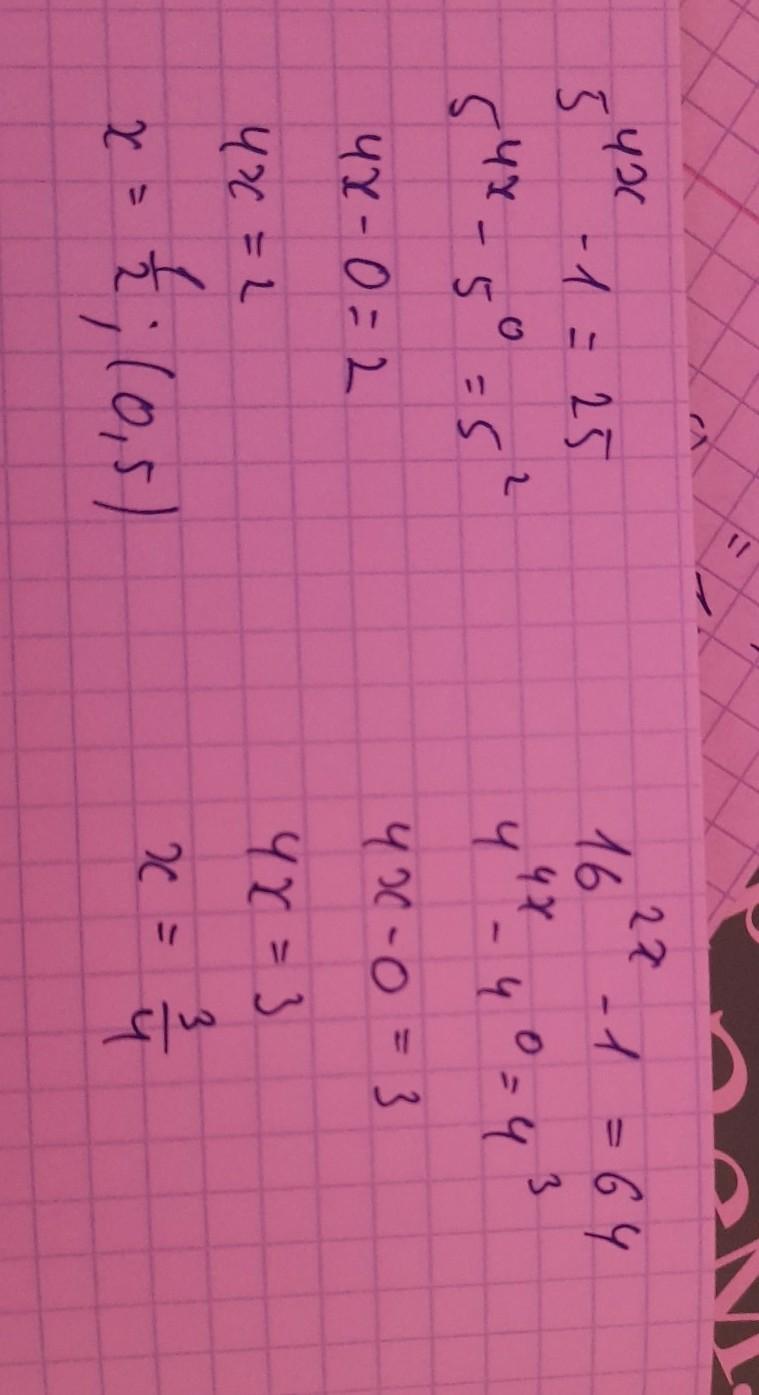 5^4x - 1 = 25
5^4x - 5^0 = 5^2
4x - 0 = 2
4x = 2
x = 1/2 ; (0,5)
16^2x - 1 = 64
4^4x - 4^0 = 4^3
4x - 0 = 3
4x = 3
x = 3/4